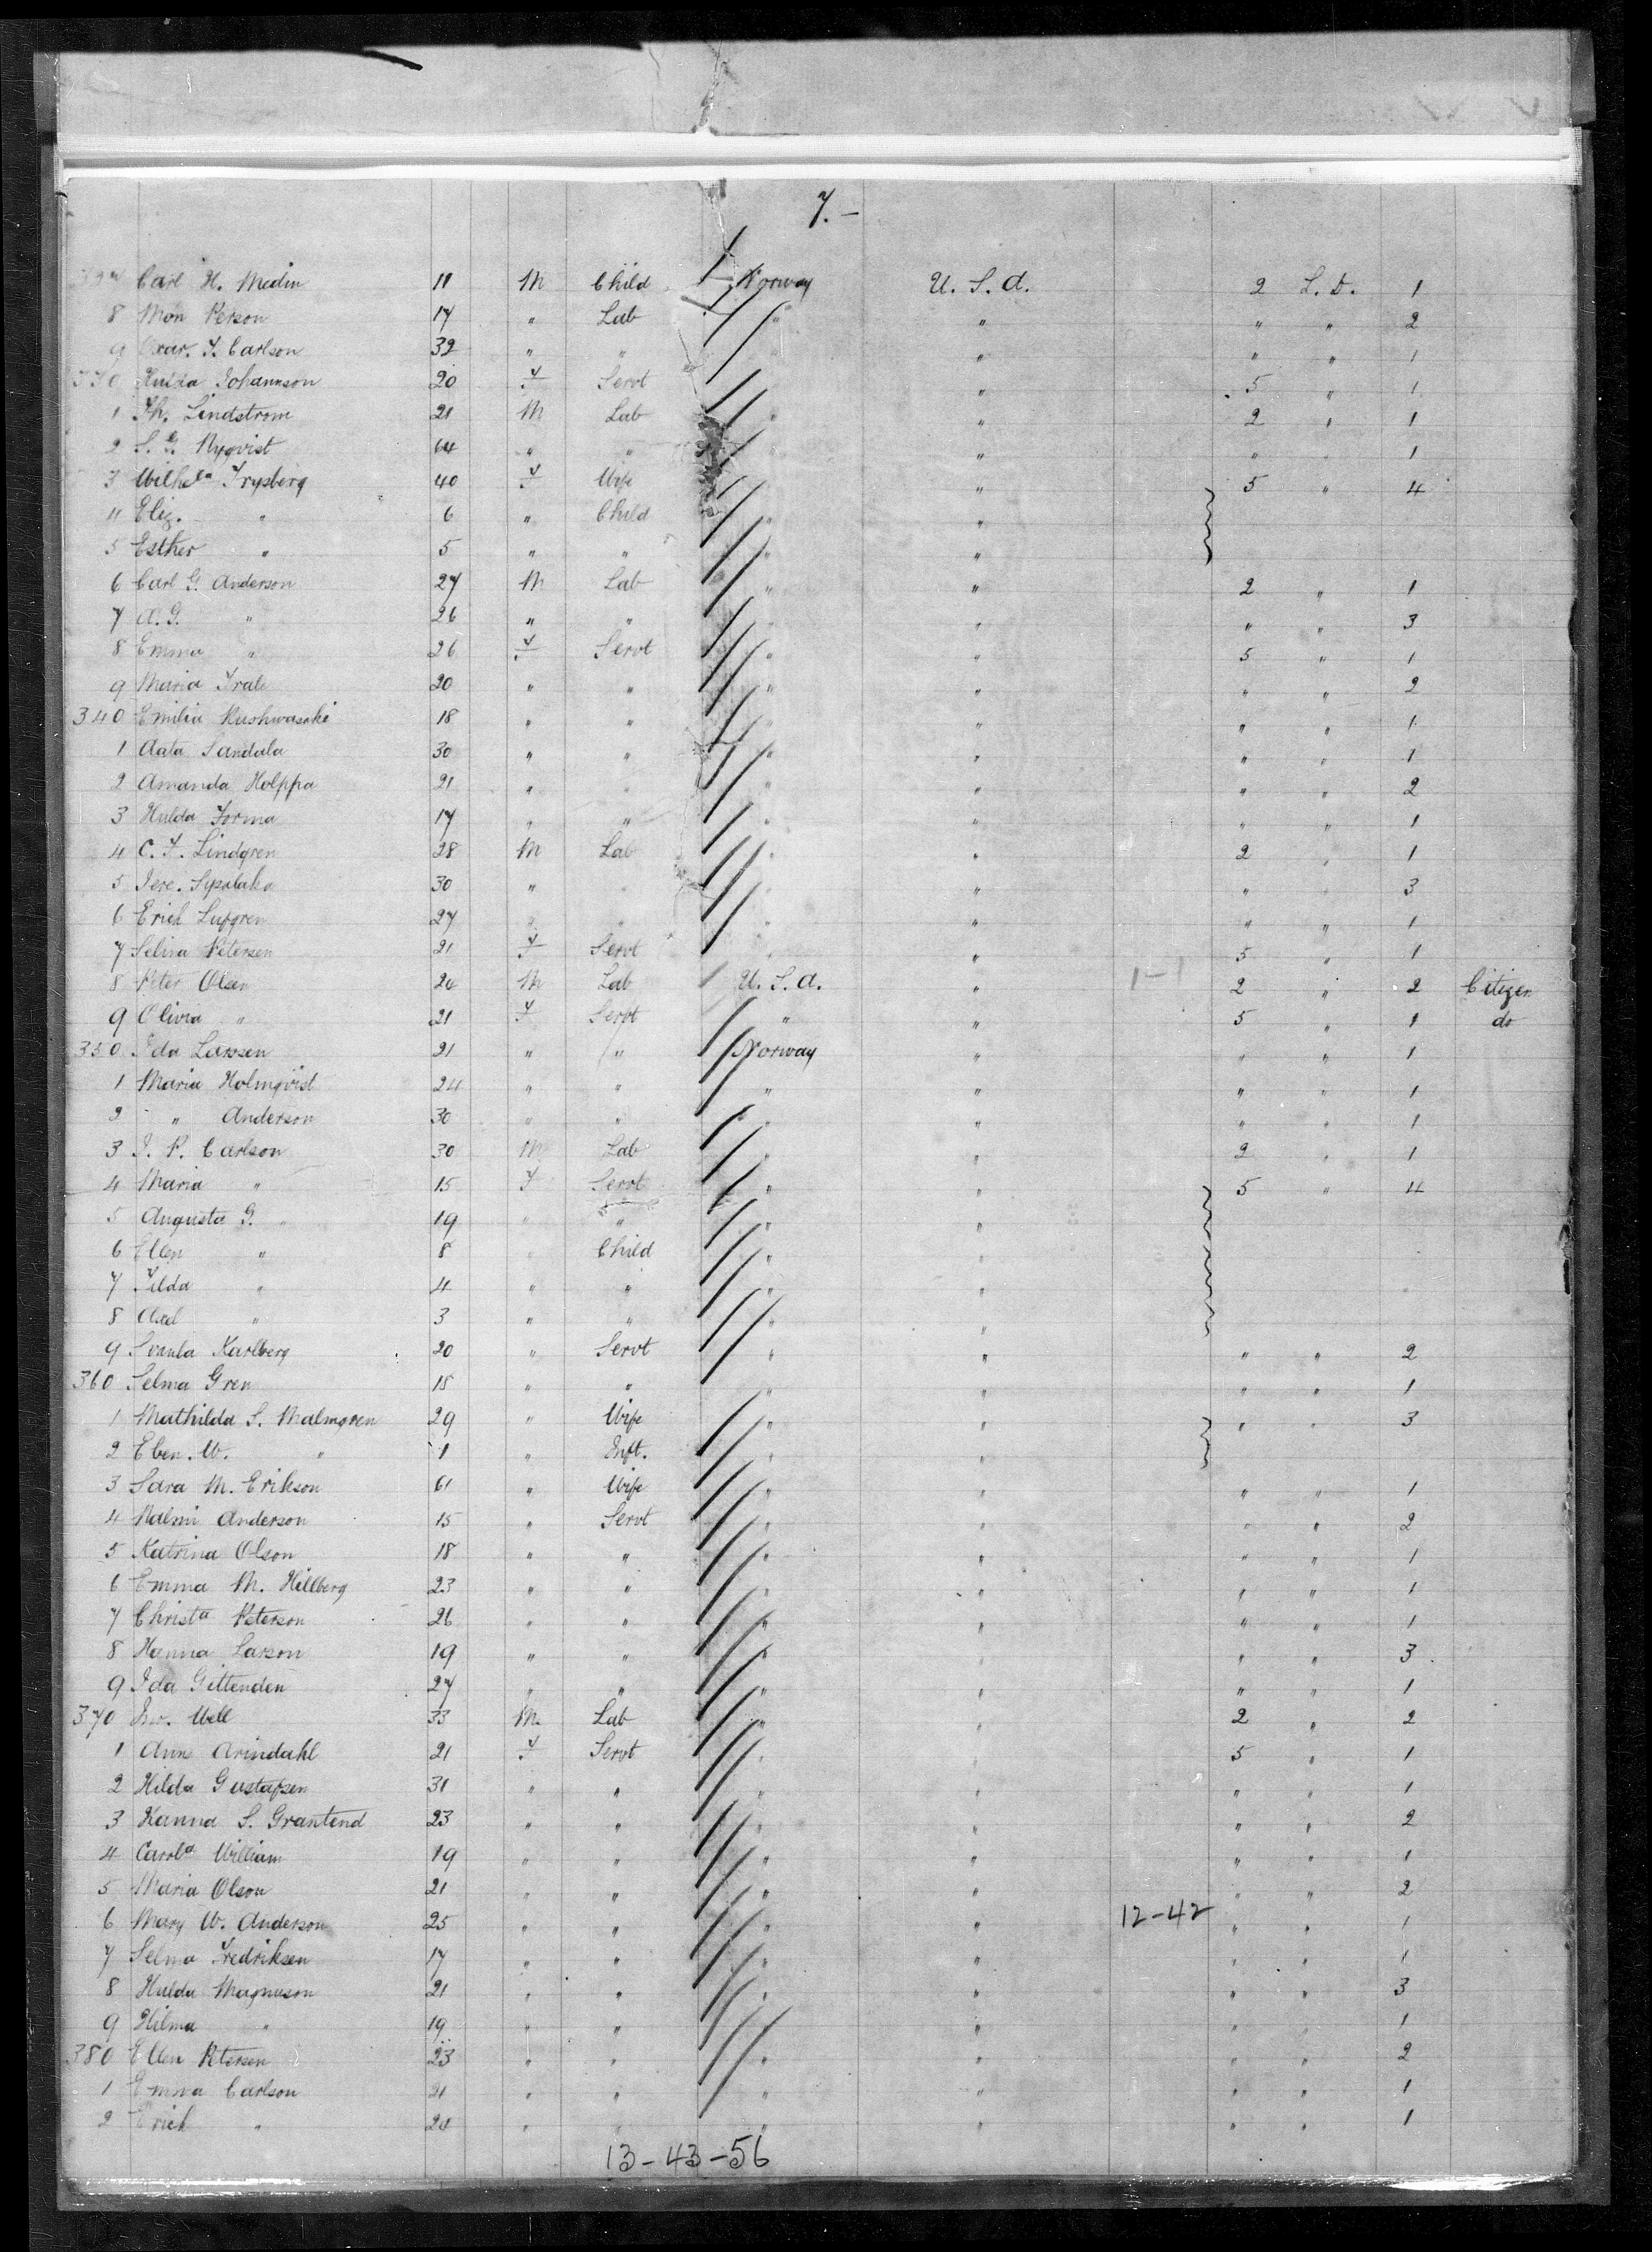 7.-
Carl H. Medin 11 M Child Norway U. S. A. 2 L. D. 1
8 Mon Person 17 " Lab " " " " 2
9 Oscar. F. Carlson 32 " " " " " " 1
330 Hulda Johannson 20 F Servt " " 5 " 1
1 Th. Lindstrom 21 M Lab " " 2 " 1
2 S. G. Nyqvist 64 " " " " " " 1
3 Wilhel^a Frysberg 40 F Wife " " 5 " 4
4 Eliz. " 6 " Child " "
5 Esther " 5 " " " "
6 Carl G. Anderson 27 M Lab " " 2 " 1
7 A. G. " 26 " " " " " " 3
8 Emma " 26 F Servt " " 5 " 1
9 Maria 20 " " " " " " 2
340 Emilia 18 " " " " " " 1
1 Aata Sandala 30 " " " " " " 1
2 Amanda Holppa 21 " " " " " " 2
3 Hulda Forma 17 " " " " " " 1
4 C. F. Lindgren 28 M Lab " " 2 " 1
5 Jere. 30 " " " " " " 3
6 Erick Lufgren 27 " " " " " " 1
7 Selina Petersen 21 F Servt " " 5 " 1
8 Peter Olsen 24 M Lab U. S. A. " 1-1 2 " 2 Citizen
9 Olivia " 21 F Servt " " 5 " 1 do
350 Ida Larssen 21 " " Norway " " " 1
1 Maria Holmqvist 24 " " " " " " 1
2 " Anderson 30 " " " " " " 1
3 J. P. Carlson 30 M Lab " " 2 " 1
4 Maria " 15 F Servt " " 5 " 4
5 Augusta G. " 19 " " " "
6 Ellen " 8 " Child " "
7 Tilda " 4 " " " "
8 Axel " 3 " " " "
9 Karlberg 20 " Servt " " " " 2
360 Selma Gren 18 " " " " " " 1
1 Mathilda S. Malmgren 29 " Wife " " " " 3
2 Eben. W. " 1 " Inft. " "
3 Sara M. Erikson 61 " Wife " " " " 1
4 Malmi Anderson 15 " Servt " " " " 2
5 Katrina Olson 18 " " " " " " 1
6 Emma M. Hillberg 23 " " " " " " 1
7 Christ^a Peterson 26 " " " " " " 1
8 Hanna Larson 19 " " " " " " 3
9 Ida Gittenden 27 " " " " " " 1
370 Jno. Well 33 M. Lab " " 2 " 2
1 Ann Arindahl 21 F Servt " " 5 " 1
2 Hilda Gustafsen 31 " " " " " " 1
3 Hanna S. Grantend 23 " " " " " " 2
4 Carol^a William 19 " " " " " " 1
5 Maria Olson 21 " " " " " " 2
6 Mary W. Anderson 25 " " " " 12-42 " " 1
7 Selma Fredriksen 17 " " " " " " 1
8 Hulda Magnuson 21 " " " " " " 3
9 Hilma " 19 " " " " " " 1
380 Ellen Petersen 23 " " " " " " 2
1 Emma Carlson 21 " " " " " " 1
2 Erick " 20 " " " " " " 1
13-43-56